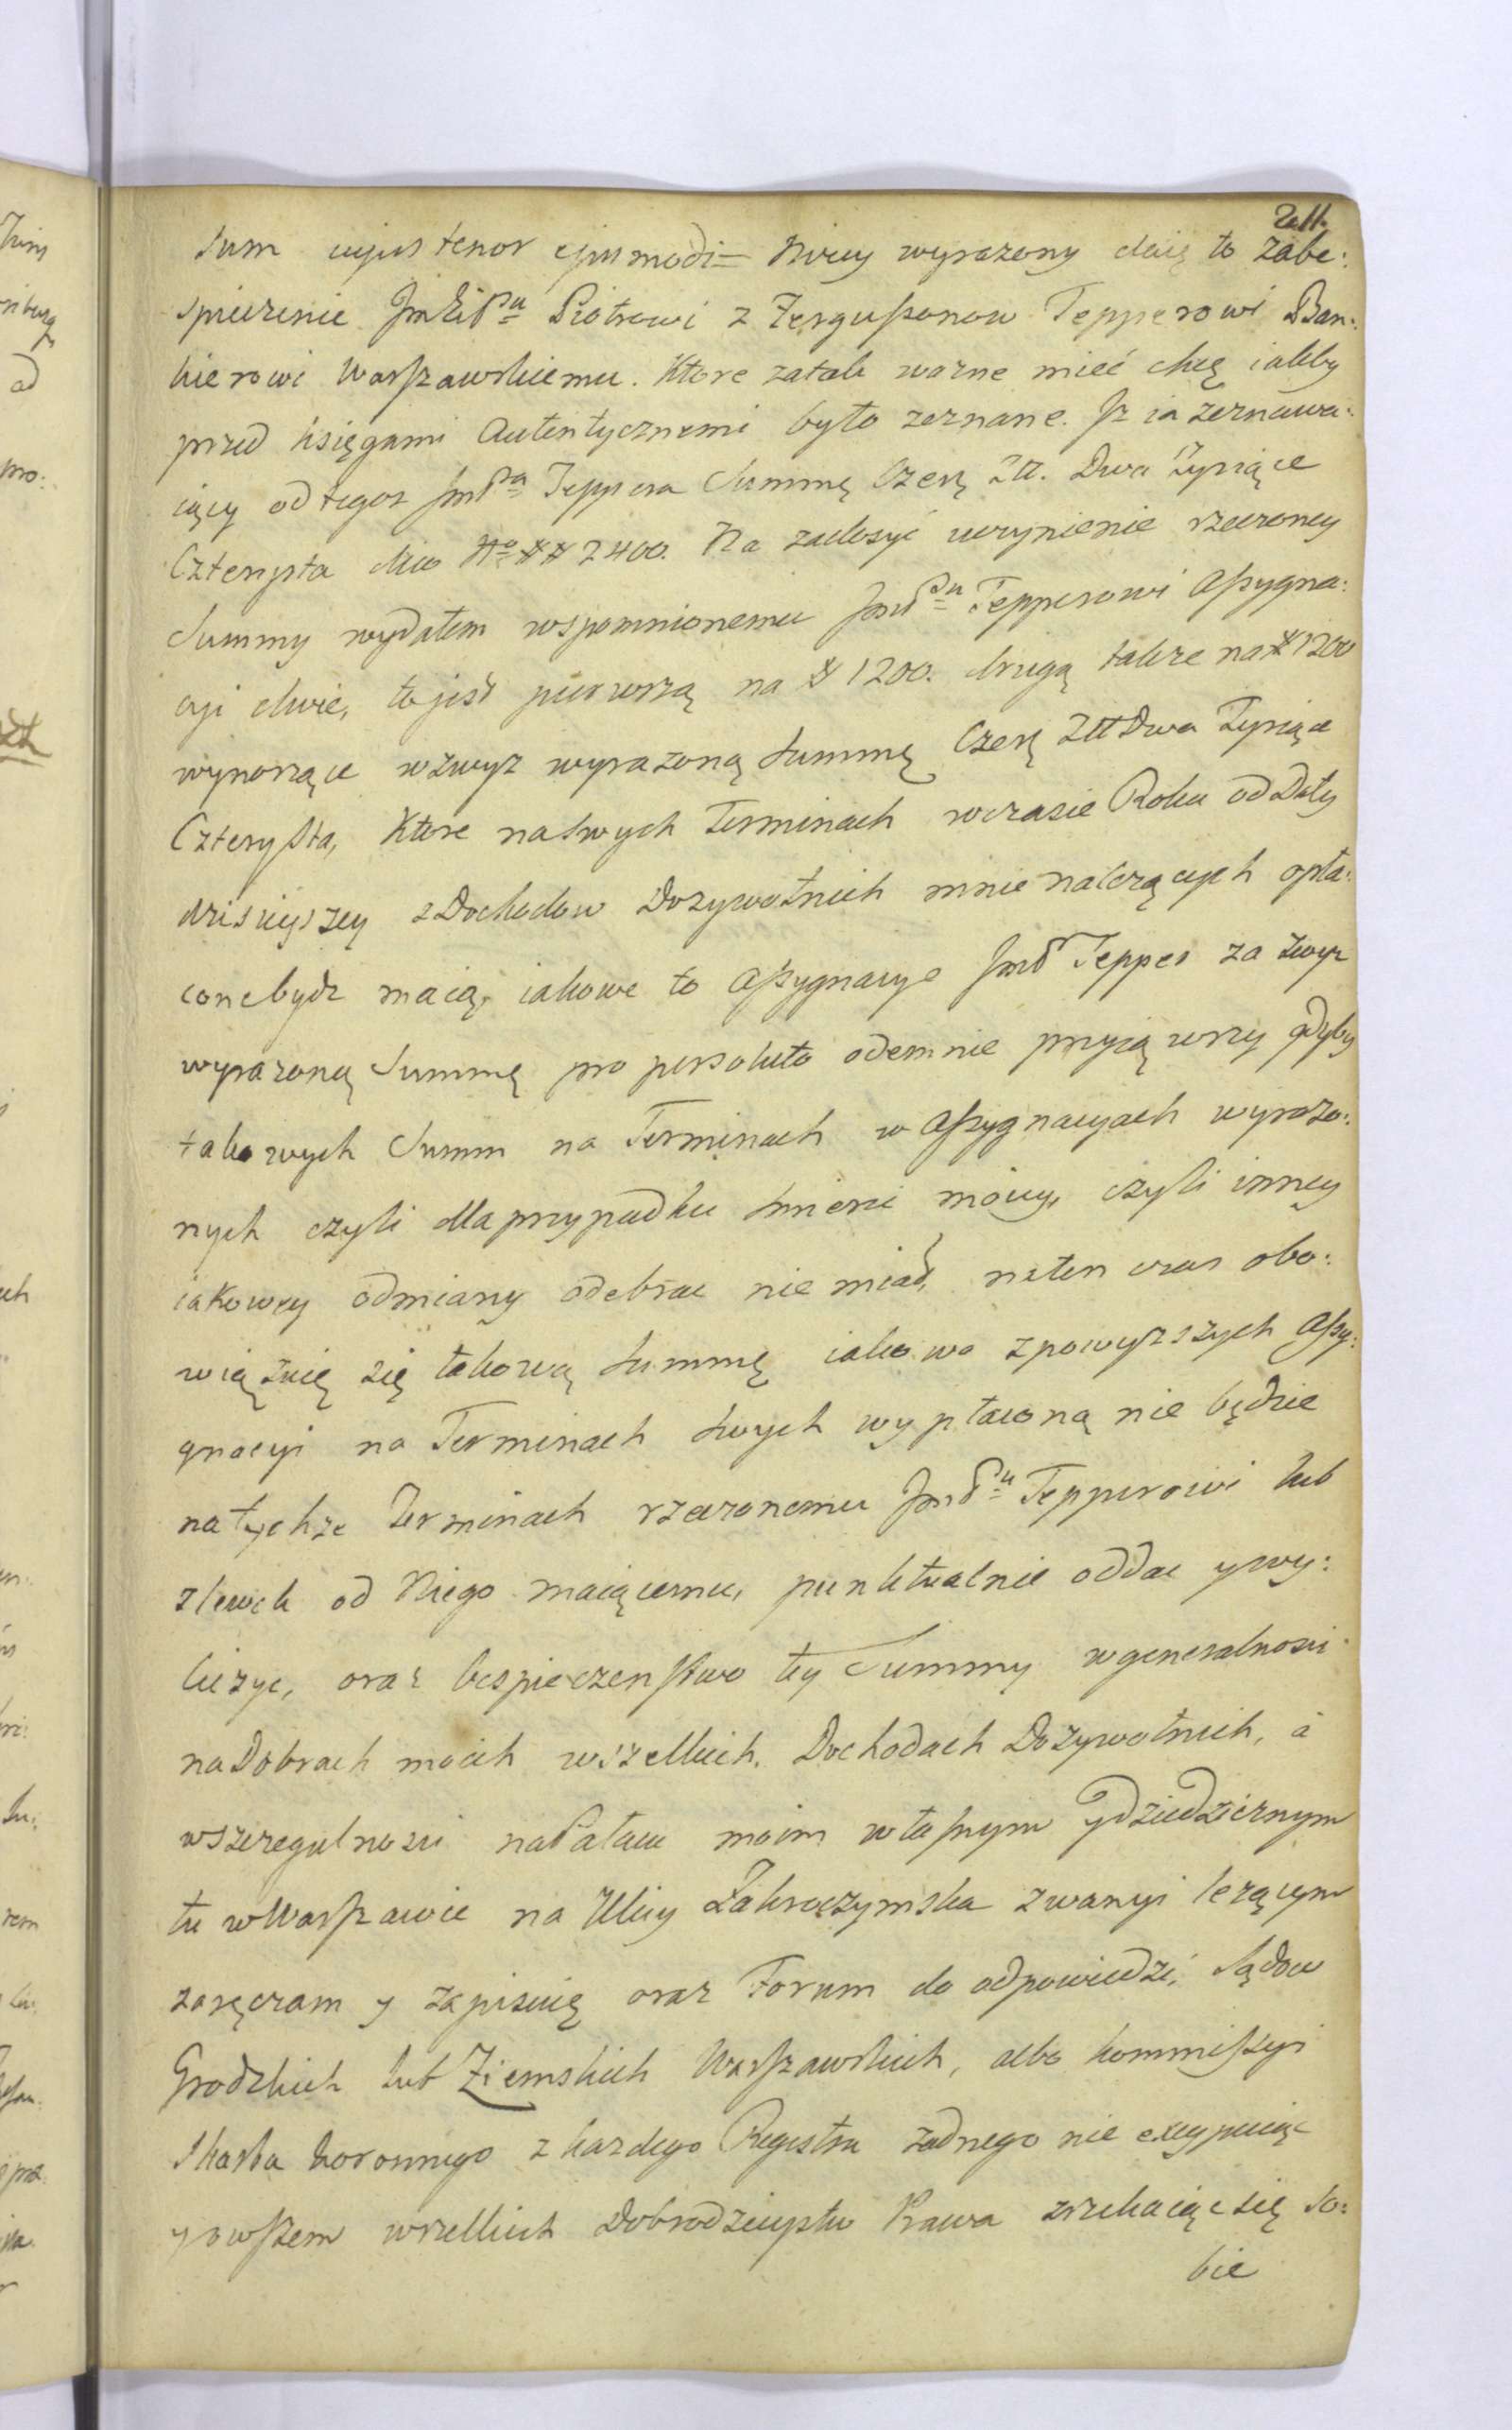 Zatt.
sum cujus tenor ejusmodi = Niżey wyrazony daię to zabe:
spieczenie JmĆi Pu Piotrowi z Fergussonow Tepperowi Ban:
kierowi Warszawskiemu. Ktore zatak wazne mieć chcę iakby
przed księgami Autentycznemi było zeznane. Iz ia zeznawa:
iący od tegoz JmPa Teppera Summę Czerę Złł. Dwa Tysiące
Czterysta dico No ## 2400. Na zadosyć uczynienie rzeczoney
Summy wydałem wspomnionemu JmPu Tepperowi Assygna:
cyi dwie, to jest pierwszą na # 1200. drugą takze na # 1200
wynoszące wzwyz wyrazoną Summę Czerę Złł Dwa Tysiące
Czterysta, Ktore naswych Terminach wczasie Roku od Daty
dzisieyszey z Dochodow Dozywotnich mnie nalezących opła:
conebydz maią, iakowe to Assygnacye JmP Tepper za zwyz
wyrazoną Summę pro persoluto odemnie przyiąwszy gdyby
takowych Summ na Terminach w Assygnacyach wyrazo:
nych czyli dla przypadku smierci moiey, czyli inney
iakowey odmiany odebrac nie miał, naten czas obo:
wiązuię się takową Summę iakowa zpowyzszych Assy:
gnacyi na Terminach swych wypłaconą nie będzie
natychze Terminach rzeczonemu JmPu Tepperowi lub
zlewek od Niego maiącemu, punktualnie oddac ywy:
liczyc, oraz bespieczenstwo tey Summy wgeneralnosci
naDobrach moich wszelkich. Dochodach Dozywotnich, á
wszczegulnosci naPałacu moim własnym ydziedzicznym
tu wWarszawie na Ulicy Zakroczymska zwanyi lezącym
zaręczam y zapisuię oraz Forum do odpowiedzi, Sądow
Grodzkich lub Ziemskich Warszawskich, albo kommissyi
Skarbu koronnego z kazdego Regestru zadnego nie excypuiąc
yowszem wszelkich Dobrodzieystw Prawa zrzekaiąc się so:
bie